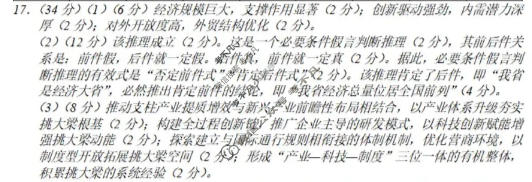 17. (34 分) (1) (6 分) 经济规模巨大，支撑作用显著 (2 分)；创新驱动强劲，内需潜力深
厚 (2 分)；对外开放度高，外贸结构优化 (2 分)。
(2) (12 分) 该推理成立 (2 分)。这是一个必要条件假言判断推理 (2 分)，其前后件关
系是：前件假，后件就一定假。后件真，前件就一定真 (2 分)。据此，必要条件假言判
断推理的有效式是“否定前件式”“肯定后件式”(2 分)。该推理肯定了后件，即“我省
是经济大省”，必然推出肯定前件的结论，即“我省经济总量位居全国前列”(4 分)。
(3) (8 分) 推动支柱产业提质增效与新兴产业前瞻性布局相结合，以产业体系升级夯实
挑大梁根基 (2 分)；构建全过程创新链，推广企业主导的研发模式，以科技创新赋能增
强挑大梁动能 (2 分)；探索建立与国际通行规则相衔接的体制机制，优化营商环境，以
制度型开放拓展挑大梁空间 (2 分)；形成“产业—科技—制度”三位一体的有机整体，
积累挑大梁的系统经验 (2 分)。